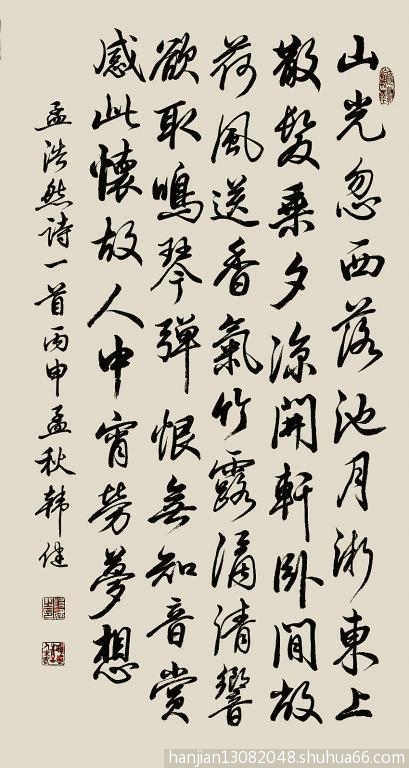 山光忽西落池月渐東上
散髮乘夕凉開軒卧閒敞
荷風送香氣竹露滴清響
欲取鳴琴彈恨無知音賞
感此懷故人中宵勞夢想
孟浩然詩一首丙申孟秋韩健
hanjian13082048.shuhua66.com